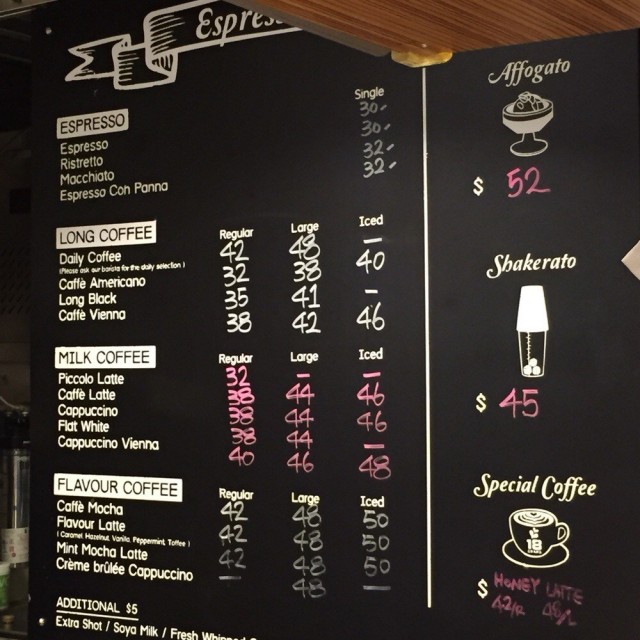 Single
ESPRESSO
Espresso 30-
Ristretto 30-
Macchiato 32-
Espresso Con Panna 32-
LONG COFFEE
Regular Large Iced
Daily Coffee 42 48 —
(Please ask our barista for the daily selection)
Caffè Americano 32 38 40
Long Black 35 41 -
Caffè Vienna 38 42 46
MILK COFFEE
Regular Large Iced
Piccolo Latte 32 — —
Caffè Latte 38 44 46
Cappuccino 38 44 46
Flat White 38 44 —
Cappuccino Vienna 40 46 48
FLAVOUR COFFEE
Regular Large Iced
Caffè Mocha 42 48 50
Flavour Latte 42 48 50
(Caramel, Hazelnut, Vanilla, Peppermint, Toffee)
Mint Mocha Latte 42 48 50
Crème brûlée Cappuccino — 48 —
ADDITIONAL $5
Extra Shot / Soya Milk / Fresh Whipped
Affogato
$ 52
Shakerato
$ 45
Special Coffee
18
$ HONEY LATTE
42/R 48/L